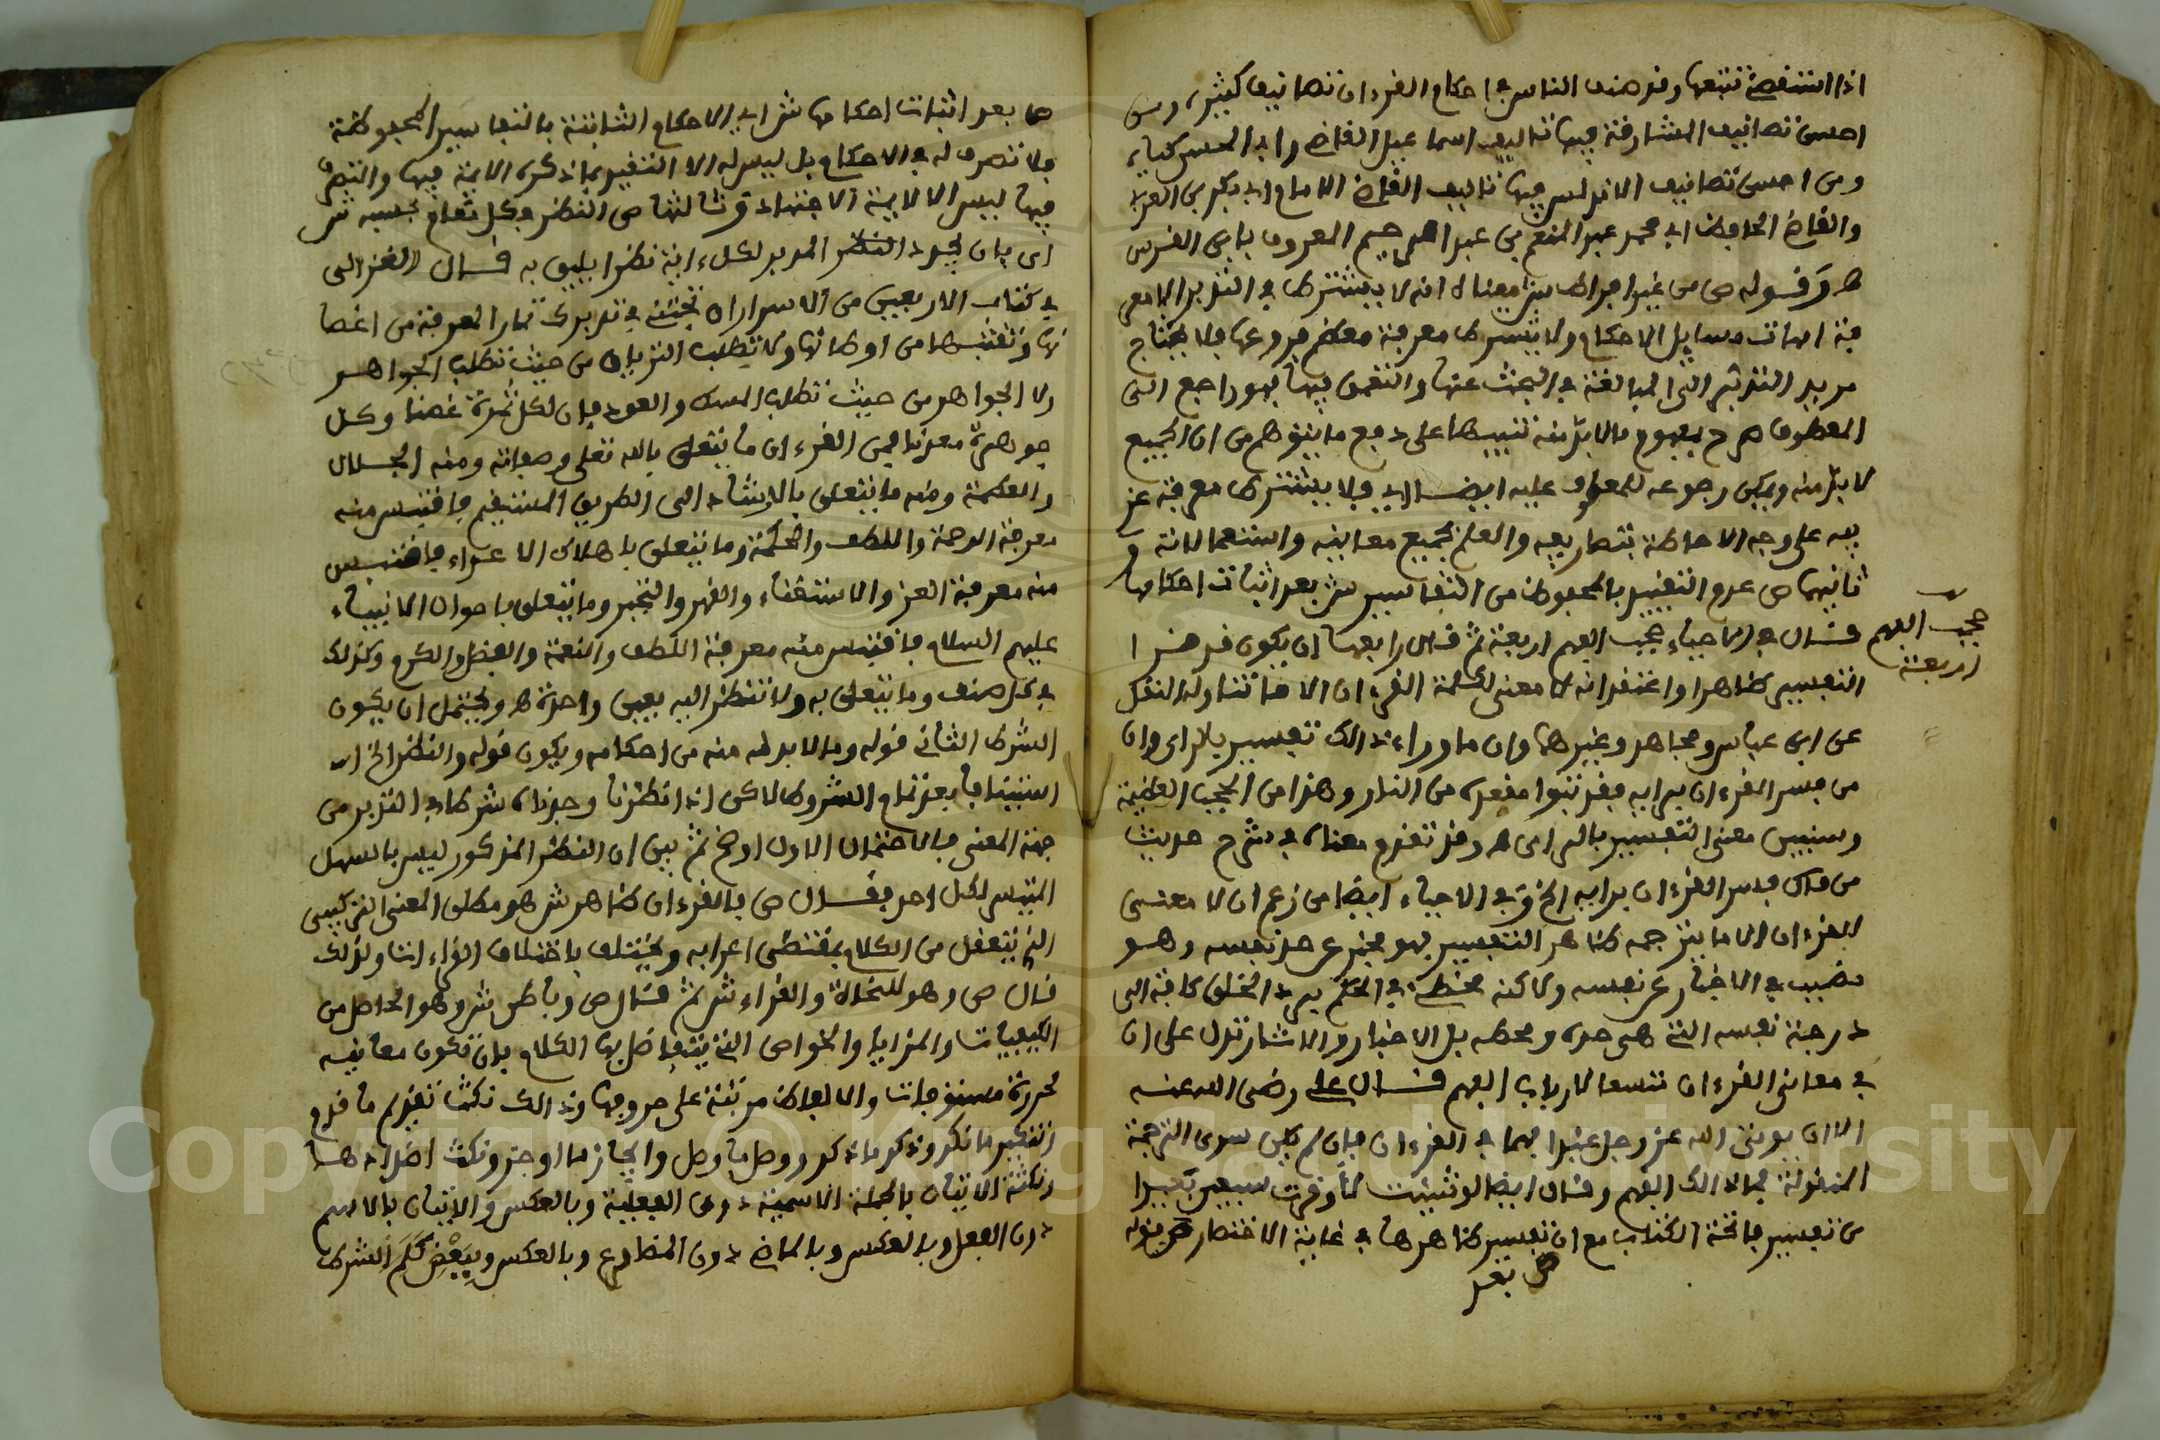 اذا استقصى تتبعها وقد صنف الناس في احكام القرءان تصانيف كثيرة ومن
احسن تصانيف المشارقة فيها تاليف اسماعيل القاضي وابي الحسن كياء
ومن احسن تصانيف الاندلس فيها تاليف القاضي الامام ابي بكر بن العربي
والقاضي الحافظ ابي محمد عبد المنعم بن عبد الرحيم المعروف بابن الفرس
وقوله ص من غير افراط ش معناه انه لا يشترط في التدبر الا معر
فة امهات مسايل الاحكام ولا يشترط معرفة معظم فروعها فلا يحتاج
مريد التدبر الى المبالغة في البحث عنها والتعمق فيها فهو راجع الى
المعطوف صرح بمفهوم ما لا بد منه تنبيها على دفع ما يتوهم من ان الجميع
لا بد منه ويمكن رجوعه للمعطوف عليه ايضا اي فلا يشترط معرفة غر
يبه على وجه الاحاطة بتصاريفه والعلم بجميع معانيه واستعمالاته و
ثانيها ص عدم التقييد بالمحفوظ من التفاسير ش بعد اثبات احكامها
قال في الاحياء حجب الفهم اربعة ثم قال رابعها ان يكون قد قرا
حجب الفهم
اربعة
التفسير ظاهرا واعتقد انه لا معنى لكلمة القرءان الا ما تناوله النقل
عن ابن عباس ومجاهد وغيرهما وان ما وراء ذالك تفسير بالراى وان
من فسر القرءان برايه فقد تبوا مقعده من النار وهذا من الحجب العظيمة
وسنبين معنى التفسير بالراى وقد تقدم معناه في شرح حديث
من قال فسر القرءان برايه الخ وفي الاحياء ايضا من زعم ان لا معنى
للقرءان الا ما يترجمه ظاهر التفسير فهو مخبر عن حد نفسه وهو
مصيب في الاخبار عن نفسه ولاكنه مخطئ في الحكم برد الخلق كافة الى
درجة نفسه التي هي حده ومحطه بل الاخبار والاثار تدل على ان
في معاني القرءان متسعا لارباب الفهم قال علي رضي الله عنه
الا ان يوتي الله عز وجل عبدا فهما في القرءان فان لم يكن سوى الترجمة
المنقولة فما ذالك الفهم وقال ايضا لو شيئت لاوقرت سبعين بعيرا
من تفسير فاتحة الكتاب مع ان تفسير ظاهرها في غاية الاختصار
ص بعد
ص بعد اثبات احكامها ش اي الاحكام الثابتة بالتفاسير المحفوظة
فلا تصرف له في الاحكام بل ليس له الا التقيد بما ذكره الايمة فيها والتصرف
فيها ليس الا لايمة الاجتهاد وثالثها ص النظر في كل مقام بحسبه ش
اى بان يجرد النظر المدبر لكل ءاية نظرا يليق به قال الغزالى
في كتاب الاربعين من الاسرار ان تجتني في تدبرك ثمار المعرفة من اغصا
نها وتقتبسها من اوطانها ولا تطلب الترياق من حيث تطلب الجواهر
ولا الجواهر من حيث تطلب المسك والعود فان لكل ثمرة غصنا وكل
جوهرة معدنا فمن القرءان ما يتعلق بالله تعلى وصفاته ومنه الجلال
والعظمة ومنه ما يتعلق بالارشاد الى الطريق المستقيم فاقتبس منه
معرفة الرحمة واللطف والحكمة وما يتعلق باهلاك الاعداء فاقتبس
منه معرفة العز والاستغناء والقهر والتجبر وما يتعلق باحوال الانبياء
عليهم السلام فاقتبس منه معرفة اللطف والنعمة والفضل والكرم وكذلك
في كل صنف وما يتعلق به ولا تنظر اليه بعين واحدة ويحتمل ان يكون
الشرط الثاني قوله وما لا بد له منه من احكامه ويكون قوله والنظر الخ
استينافا بعد تمام الشروط لاكن اذا نظرنا وجدناه شرطا في التدبر من
جهة المعنى فالاحتمال الاول اوضح ثم بين ان النظر المذكور ليس بالسهل
المتيسر لكل احد فقال ص فالقرءان ظاهر ش هو مطلق المعنى التركيبي
الذي يتعقل من الكلام بمقتضى اعرابه ويختلف باختلاف القراءات ولذلك
قال ص وهو للنحاة والقراء ش ثم قال ص وباطن ش وهو الحاصل من
الكيفيات والمزايا والخواص التي يتفاضل بها الكلام بان تكون معانيه
محررة مستوفات والالفاظ مرتبة على حروفها وذالك نكتة تقديم ما قدم
وتنكير ما نكر وذكر ما ذكر ووصل ما وصل وايجاز ما اوجز ونكت اضدادها
ونكتة الاتيان بالجملة الاسمية دون الفعلية وبالعكس والاتيان بالاسم
دون الفعل وبالعكس وبالماضي دون المضارع وبالعكس وببعض كلم الشرط
Copyright © King Saud University